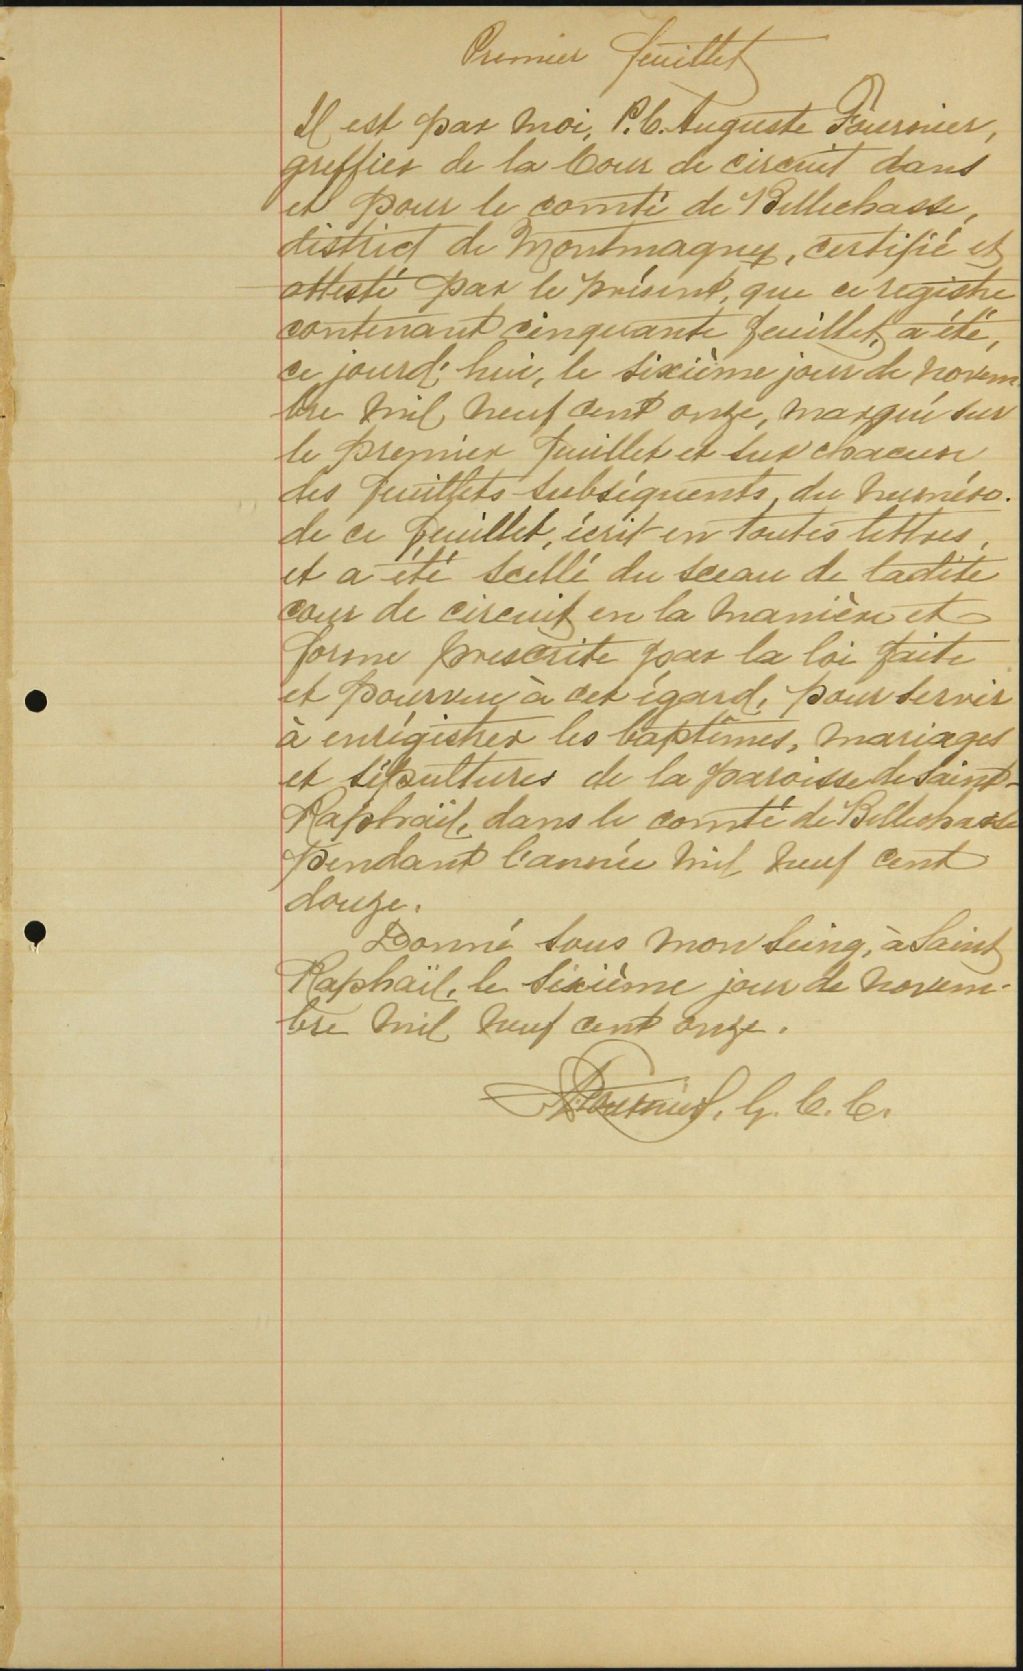 Premier feuillet
Il est par moi, P. C. Auguste Fournier,
greffier de la Cour de circuit dans
et pour le comté de Bellechasse,
district de Montmagny, certifié et
attesté par le présent, que ce registre
contenant cinquante feuillets, a été,
ce jourd'hui, le sixième jour de novem-
bre mil neuf cent onze, marqué sur
le premier feuillet et sur chacun
des feuillets subséquents, du numéro
de ce feuillet, écrit en toutes lettres,
et a été scellé du sceau de ladite
cour de circuit en la manière et
forme prescrite par la loi faite
et pourvue à cet égard, pour servir
à enrégistrer les baptêmes, mariages
et sépultures de la paroisse de Saint-
Raphaïl, dans le comté de Bellechasse
pendant l'année mil neuf cent
douze.
Donné sous mon seing, à Saint
Raphaïl, le sixième jour de novem-
bre mil neuf cent onze.
Fournier, G. C. C.